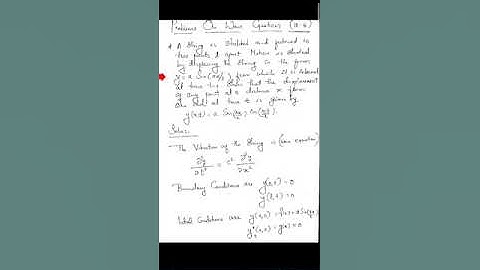 Problems On Wave Equations
A String is Stretched and fastened to
two points l apart. Motion is started
by displacing the String in the form
y = a Sin(πx/l) from which it is released
at time t=0. Show that the displacement
of any point at a distance x from
one end at time t is given by
y(x,t) = a Sin(πx/l) Cos(πct/l)
Soln:-
The Vibration of the String is (wave equation)
∂²y/∂t² = c² ∂²y/∂x²
Boundary Conditions are y(0,t) = 0
y(l,t) = 0
Initial Conditions are y(x,0) = f(x) = a Sin(πx/l)
(x,0) = g(x) = 0